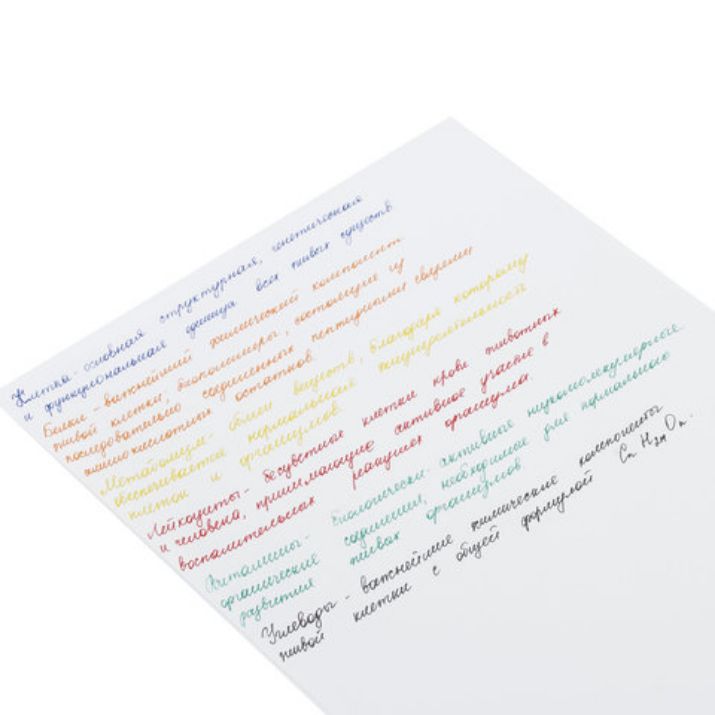 Клетка - основная структурная, генетическая
и функциональная единица всех живых существ.
Белки - важнейший химический компонент
живой клетки, биополимеры, состоящие из
последовательно соединенных пептидными связями
аминокислотных остатков.
Метаболизм - обмен веществ, благодаря которому
обеспечивается нормальная жизнедеятельность
клеток и организмов.
Лейкоциты - бесцветные клетки крови животных
и человека, принимающие активное участие в
воспалительных реакциях организма.
Витамины - биологически-активные низкомолекулярные
органические соединения, необходимые для нормального
развития живых организмов
Углеводы - важнейшие химические компоненты
живой клетки с общей формулой Cn H2n On.